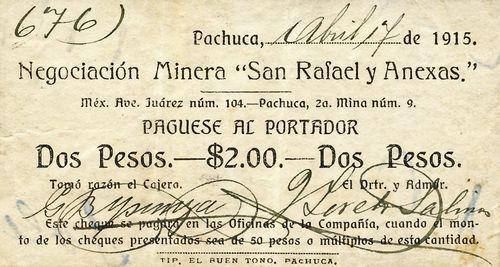 676)
Pachuca, Abril 17 de 1915.
Negociación Minera "San Rafael y Anexas."
Méx. Ave. Juárez núm. 104.—Pachuca, 2a. Mina núm. 9.
PAGUESE AL PORTADOR
Dos Pesos.—$2.00.—Dos Pesos.
Tomó razón el Cajero. El Drtr. y Admór.
Este cheque se pagará en las Oficinas de la Compañía, cuando el mon-
to de los cheques presentados sea de 50 pesos o múltiplos de esta cantidad.
TIP. EL BUEN TONO, PACHUCA.